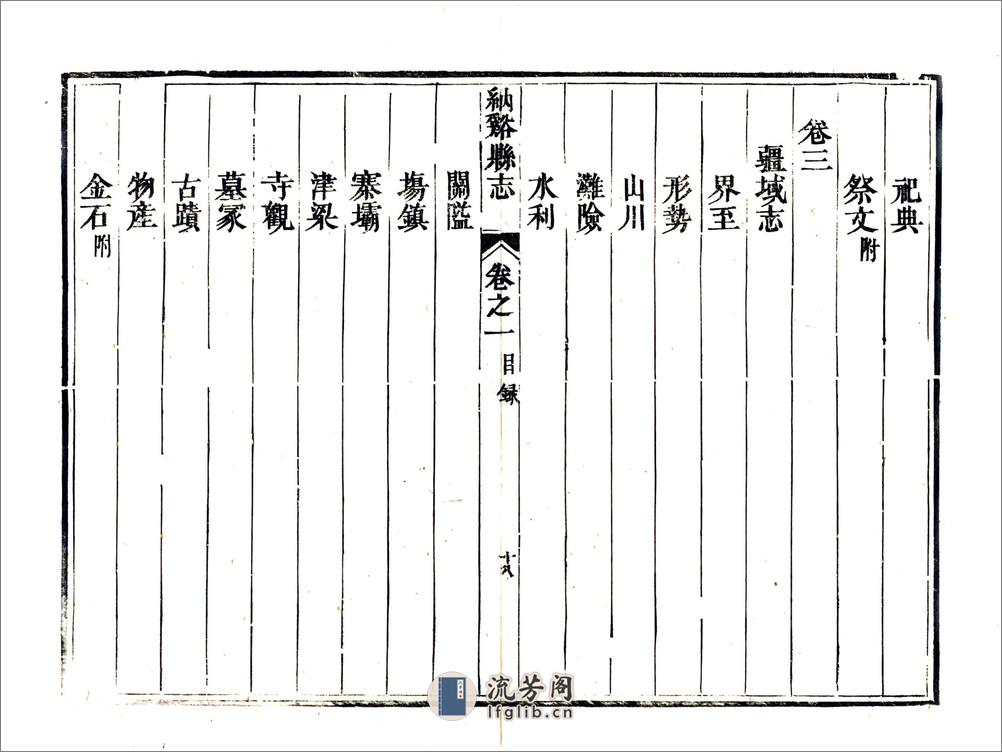 祀典
祭文附
卷三
疆域志
界至
形勢
山川
灘險
水利
納谿縣志
卷之一
目録
十八
關隘
塲鎮
寨壩
津梁
寺觀
墓冢
古蹟
物產
金石附
流芳阁
lfglib.cn